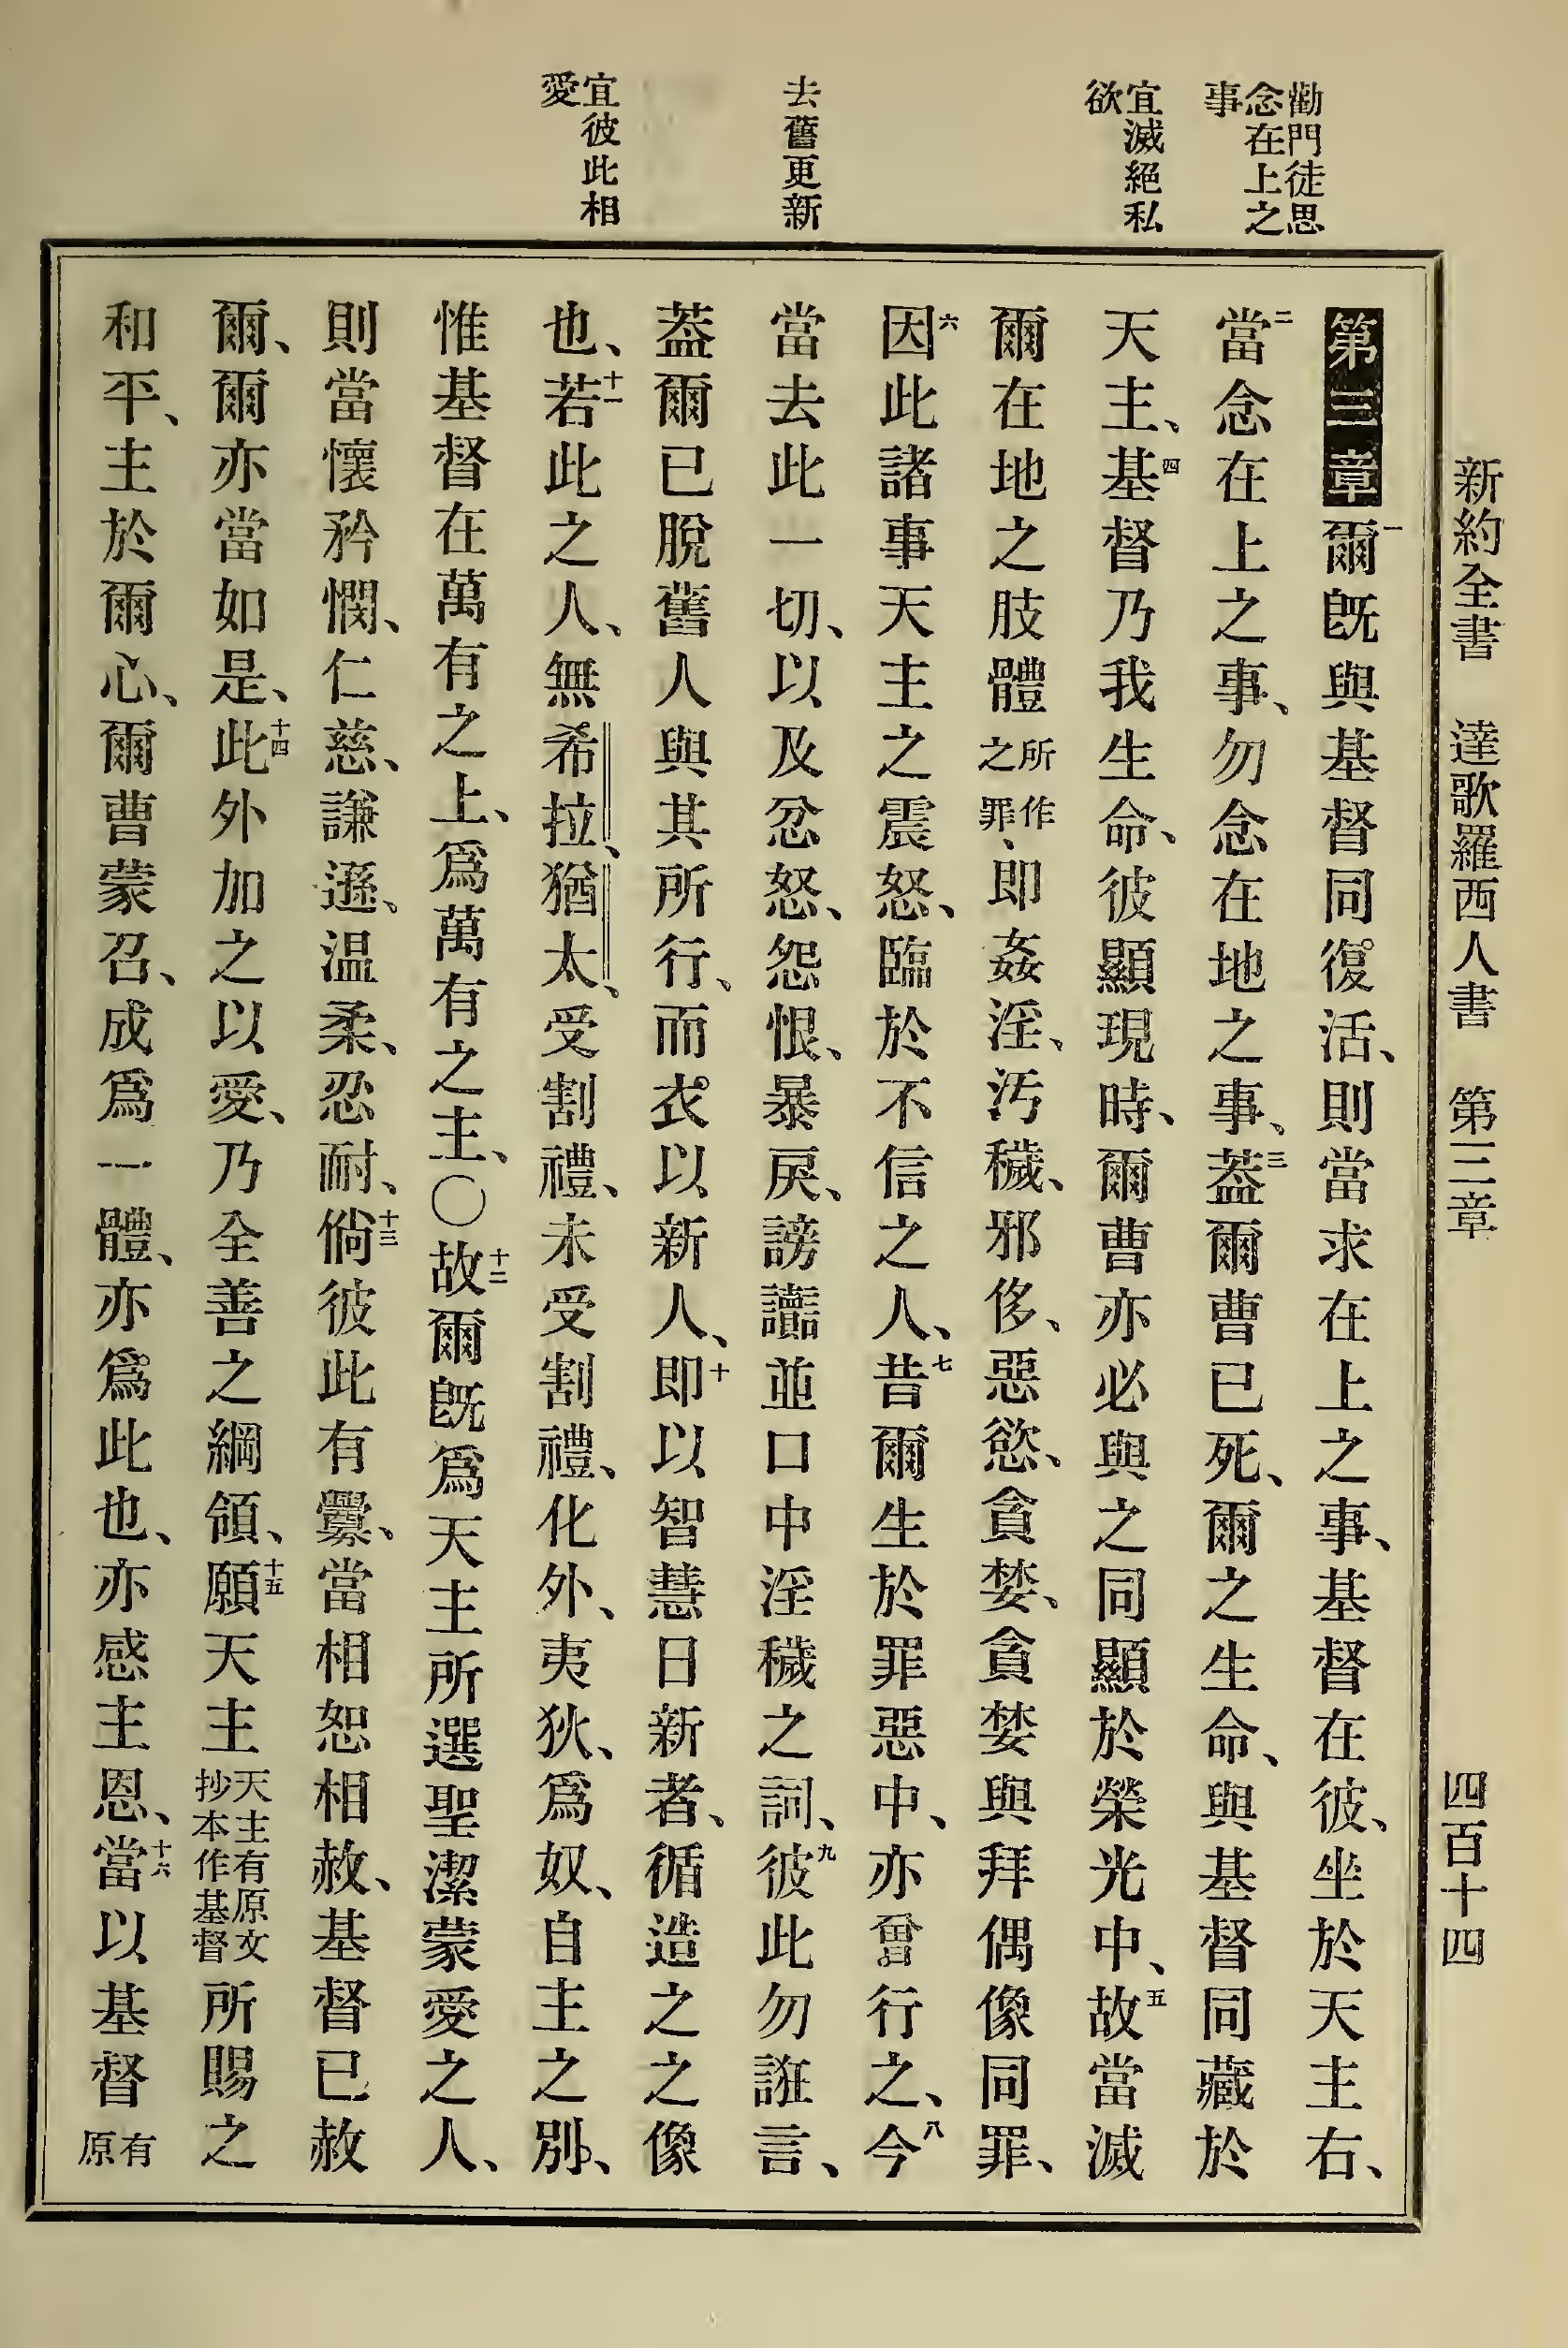 新約全書 達歌羅西人書 第三章 四百十四
勸門徒思
念在上之
事
宜滅絕私
欲
去舊更新
宜彼此相
愛
第三章一爾旣與基督同復活、則當求在上之事、基督在彼、坐於天主右、
二當念在上之事、勿念在地之事、三蓋爾曹已死、爾之生命、與基督同藏於
天主、四基督乃我生命、彼顯現時、爾曹亦必與之同顯於榮光中、五故當滅
爾在地之肢體所作之罪、即姦淫、汚穢、邪侈、惡慾、貪婪、貪婪與拜偶像同罪、
六因此諸事天主之震怒、臨於不信之人、七昔爾生於罪惡中、亦曾行之、八今
當去此一切、以及忿怒、怨恨、暴戾、謗讟並口中淫穢之詞、九彼此勿誑言、
蓋爾已脫舊人與其所行、而衣以新人、十即以智慧日新者、循造之之像
也、十一若此之人、無希拉、猶太、受割禮、未受割禮、化外、夷狄、爲奴、自主之別、
惟基督在萬有之上、爲萬有之主、〇十二故爾旣爲天主所選聖潔蒙愛之人、
則當懷矜憫、仁慈、謙遜、温柔、忍耐、十三倘彼此有釁、當相恕相赦、基督已赦
爾、爾亦當如是、十四此外加之以愛、乃全善之綱領、十五願天主天主有原文抄本作基督所賜之
和平、主於爾心、爾曹蒙召、成爲一體、亦爲此也、亦感主恩、十六當以基督有原